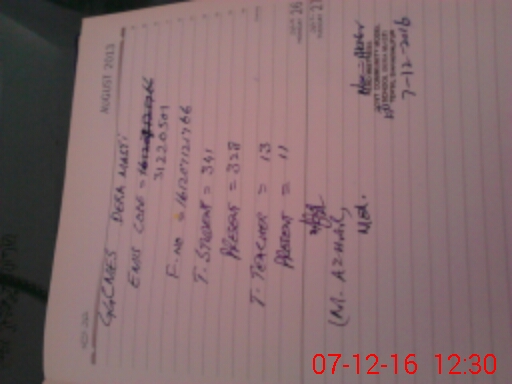 AUGUST 2013
GGCMES DERA MASTI
EMIS CODE =
31220501
F. NO = 161207121766
T. STUDENT = 341
PRESENT = 328
T. TEACHER = 13
PRESENT = 11
(M. AZHAR)
7-12-2016
07-12-16 12:30